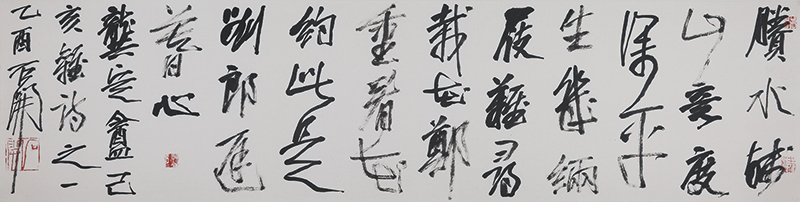 賸水殘
山意度
深平
生幾緉
屐難尋
栽花鄭
重看花
約此是
劉郎遲
暮心
龔定盦己
亥雜詩之一
乙酉石開